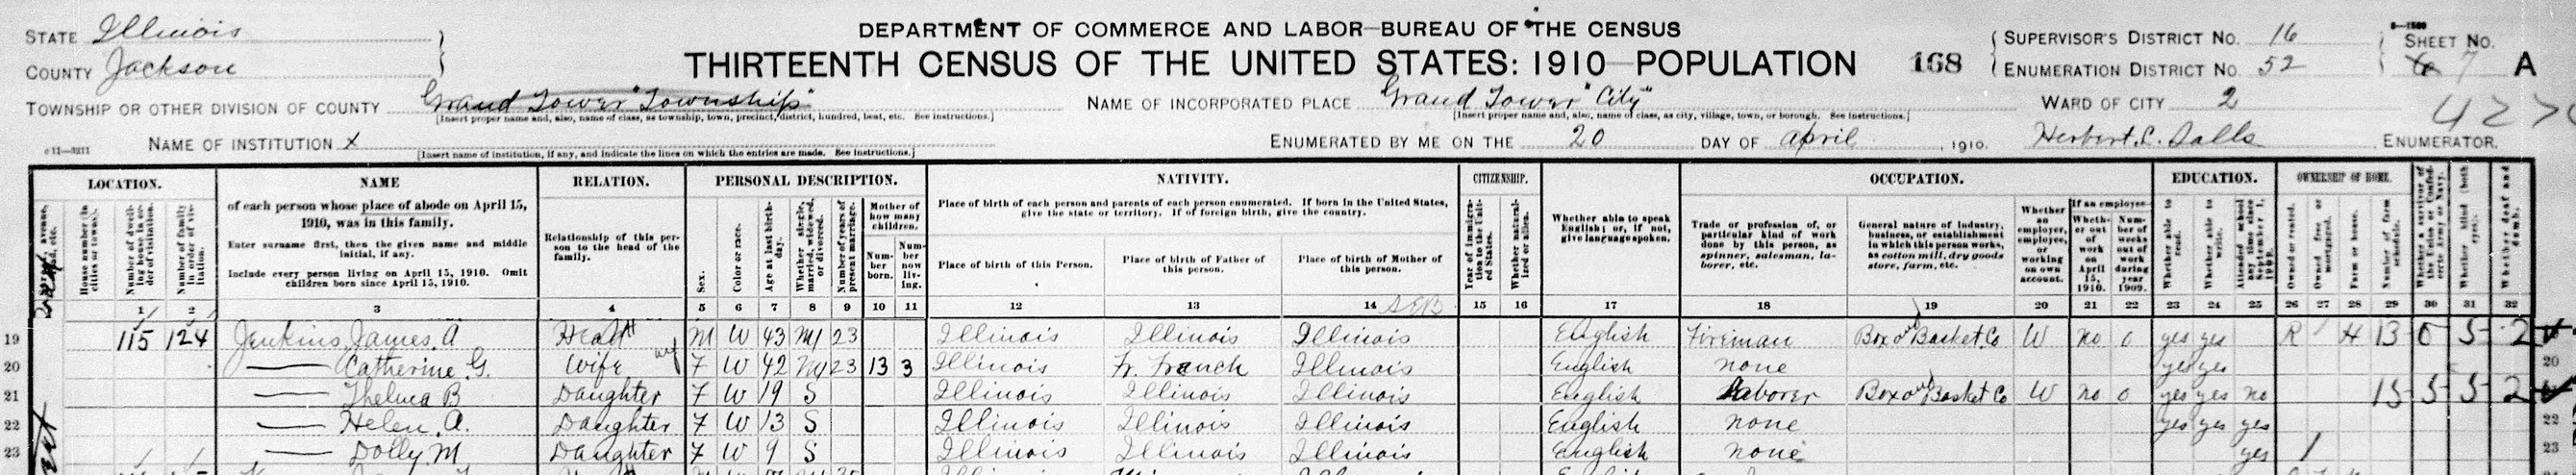 STATE Illinois
COUNTY Jackson
TOWNSHIP OR OTHER DIVISION OF COUNTY Grand Tower "Township"
[Insert proper name and, also, name of class, as township, town, precinct, district, hundred, beat, etc. See instructions.]
NAME OF INSTITUTION X
[Insert name of institution, if any, and indicate the lines on which the entries are made. See instructions.]
c 11—3211
DEPARTMENT OF COMMERCE AND LABOR—BUREAU OF THE CENSUS
THIRTEENTH CENSUS OF THE UNITED STATES: 1910—POPULATION
168
NAME OF INCORPORATED PLACE Grand Tower "City"
[Insert proper name and, also, name of class, as city, village, town, or borough. See instructions.]
ENUMERATED BY ME ON THE 20 DAY OF April, 1910.
SUPERVISOR'S DISTRICT NO. 16
ENUMERATION DISTRICT NO. 52
SHEET NO.
7 A
WARD OF CITY 2
Herbert C. ENUMERATOR.
LOCATION.
House number (in cities or towns).
Number of dwelling house in order of visitation.
Number of family in order of visitation.
NAME
of each person whose place of abode on April 15, 1910, was in this family.
Enter surname first, then the given name and middle initial, if any.
Include every person living on April 15, 1910. Omit children born since April 15, 1910.
RELATION.
Relationship of this person to the head of the family.
PERSONAL DESCRIPTION.
Sex.
Color or race.
Age at last birthday.
Whether single, married, widowed, or divorced.
Number of years of present marriage.
Mother of how many children.
Number born.
Number now living.
NATIVITY.
Place of birth of each person and parents of each person enumerated. If born in the United States, give the state or territory. If of foreign birth, give the country.
Place of birth of this Person.
Place of birth of Father of this person.
Place of birth of Mother of this person.
CITIZENSHIP.
Year of immigration to the United States.
Whether naturalized or alien.
Whether able to speak English; or, if not, give language spoken.
OCCUPATION.
Trade or profession of, or particular kind of work done by this person, as spinner, salesman, laborer, etc.
General nature of industry, business, or establishment in which this person works, as cotton mill, dry goods store, farm, etc.
Whether an employer, employee, or working on own account.
If an employee—
Whether out of work on April 15, 1910.
Number of weeks out of work during year 1909.
EDUCATION.
Whether able to read.
Whether able to write.
Attended school any time since September 1, 1909.
OWNERSHIP OF HOME.
Owned or rented.
Owned free or mortgaged.
Farm or house.
Number of farm schedule.
Whether a survivor of the Union or Confederate Army or Navy.
Whether blind (both eyes).
Whether deaf and dumb.
1 2 3 4 5 6 7 8 9 10 11 12 13 14 15 16 17 18 19 20 21 22 23 24 25 26 27 28 29 30 31 32
19 115 124 Jenkins, James, A Head M W 43 M1 23 Illinois Illinois Illinois English Fireman Box & Basket Co W no 0 yes yes R H 13 0 5 2
20 —— Catherine G. Wife F W 42 M1 23 13 3 Illinois Fr. French Illinois English none yes yes 20
21 —— Thelma B Daughter F W 19 S Illinois Illinois Illinois English Laborer Box & Basket Co W no 0 yes yes no 15 5 5 2
22 —— Helen, A. Daughter F W 13 S Illinois Illinois Illinois English none yes yes yes 22
23 —— Dolly, M Daughter F W 9 S Illinois Illinois Illinois English none yes 23